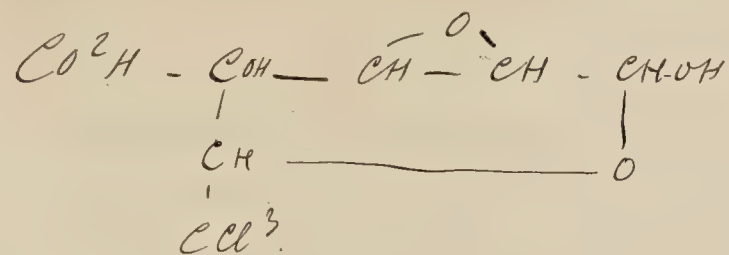 O
CO²H - COH — CH — CH - CH-OH
CH — O
CCl³.